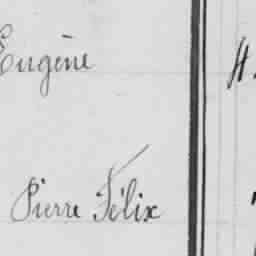 Eugène
H.
Pierre Félix